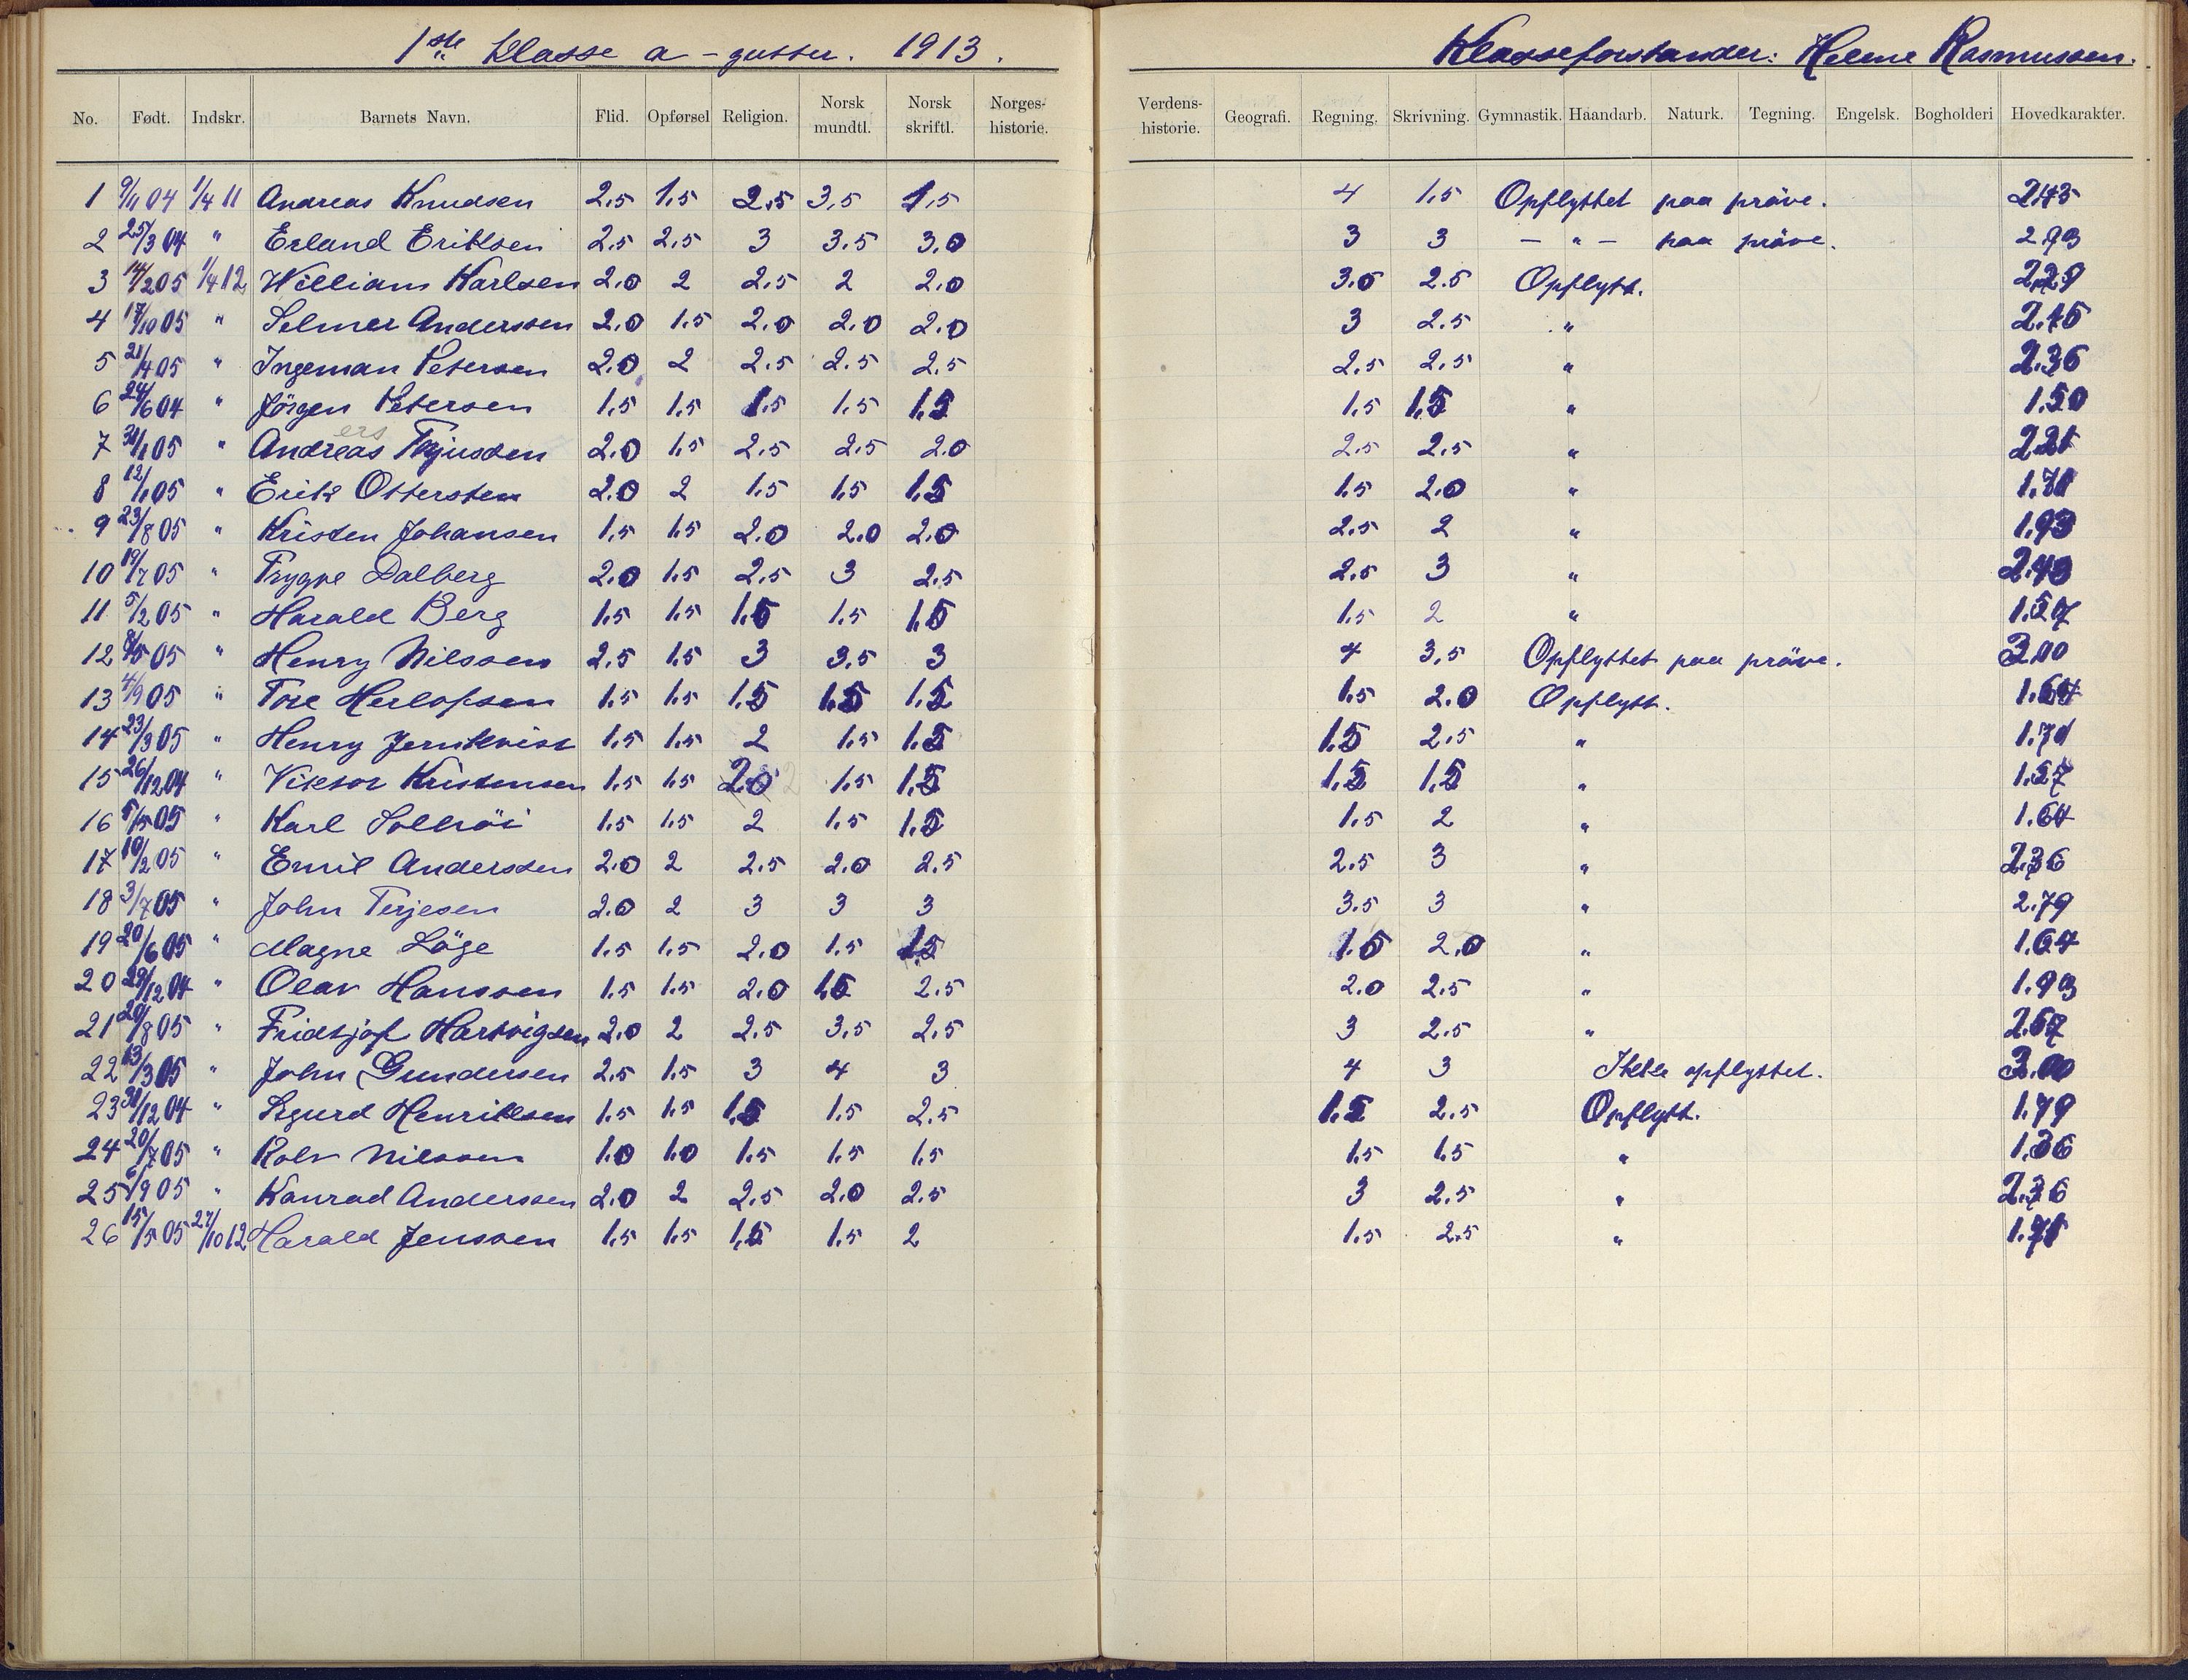 1ste Klasse a - gutter. 1913.
Klasseforstander: Helene Rasmussen.
No. Født. Indskr. Barnets Navn. Flid. Opførsel Religion. Norsk mundtl. Norsk skriftl. Norges-historie. Verdens-historie. Geografi. Regning. Skrivning. Gymnastik. Haandarb. Naturk. Tegning. Engelsk. Bogholderi Hovedkarakter.
1 04 1/4 11 Andreas Knudsen 2.5 1.5 2.5 3.5 1.5 4 1.5 Opflyttet paa pröve. 2.43
2 25/3 04 " Erland Eriksen 2.5 2.5 3 3.5 3.0 3 3 — " — paa pröve. 2.93
3 14/2 05 1/4 12 William Karlsen 2.0 2 2.5 2 2.0 3.0 2.5 Opflytt. 2.29
4 17/10 05 " Selmer Anderssen 2.0 1.5 2.0 2.0 2.0 3 2.5 " 2.15
5 21/4 05 " Ingeman Petersen 2.0 2 2.5 2.5 2.5 2.5 2.5 " 2.36
6 24/6 04 " Jörgen Petersen 1.5 1.5 1.5 1.5 1.5 1.5 1.5 " 1.50
ers
7 31/1 05 " Andreas 2.0 1.5 2.5 2.5 2.0 2.5 2.5 " 2.21
8 12/1 05 " Erik Ottersten 2.0 2 1.5 1.5 1.5 1.5 2.0 " 1.71
9 23/8 05 " Kristen Johansen 1.5 1.5 2.0 2.0 2.0 2.5 2 " 1.93
10 19/7 05 " Trygve Dalberg 2.0 1.5 2.5 3 2.5 2.5 3 " 2.43
11 5/2 05 " Harald Berg 1.5 1.5 1.5 1.5 1.5 1.5 2 " 1.57
12 8/5 05 " Henry Nilssen 2.5 1.5 3 3.5 3 4 3.5 Opflyttet paa pröve. 3.00
13 4/9 05 " Tore Herlofsen 1.5 1.5 1.5 1.5 1.5 1.5 2.0 Opflytt. 1.64
14 23/3 05 " Henry Jernkvist 1.5 1.5 2 1.5 1.5 1.5 2.5 " 1.71
15 26/12 04 " Viktor Kristensen 1.5 1.5 2.0 1.5 1.5 1.5 1.5 " 1.57
16 5/5 05 " Karl Solhöi 1.5 1.5 2 1.5 1.5 1.5 2 " 1.64
17 10/2 05 " Emil Anderssen 2.0 2 2.5 2.0 2.5 2.5 3 " 2.36
18 3/7 05 " John Terjesen 2.0 2 3 3 3 3.5 3 " 2.79
19 20/6 05 " Magne Löge 1.5 1.5 2.0 1.5 1.5 1.5 2.0 " 1.64
20 29/12 04 " Olav Hanssen 1.5 1.5 2.0 1.5 2.5 2.0 2.5 " 1.93
21 20/8 05 " Fridtjof Hartvigsen 2.0 2 2.5 3.5 2.5 3 2.5 " 2.57
22 13/3 05 " John Gundersen 2.5 1.5 3 4 3 4 3 Ikke opflyttet. 3.00
23 31/12 04 " Sigurd Henriksen 1.5 1.5 1.5 1.5 2.5 1.5 2.5 Opflytt. 1.79
24 20/7 05 " Rolv Nilssen 1.0 1.0 1.5 1.5 1.5 1.5 1.5 " 1.36
25 6/9 05 " Konrad Anderssen 2.0 2 2.5 2.0 2.5 3 2.5 " 2.36
26 15/5 05 27/10 12 Harald Jenssen 1.5 1.5 1.5 1.5 2 1.5 2.5 " 1.71